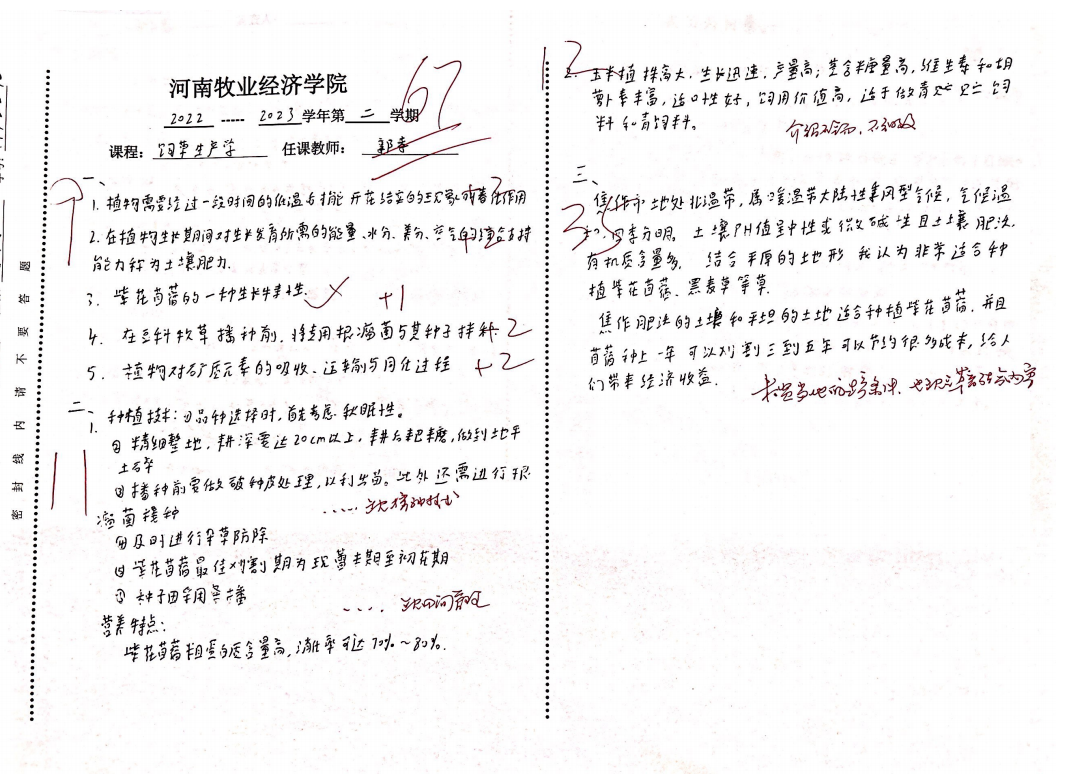 河南牧业经济学院
2022 ----- 2023 学年第 二 学期
67
课程: 饲草生产学 任课教师:
密 封 线 内 请 不 要 答 题
一、
1. 植物需要经过一段时间的低温后才能开花结实的现象或春化作用
2. 在植物生长期间对生长发育所需的能量、水分、养分、空气的综合支持
能力称为土壤肥力.
3. 紫花苜蓿的一种生长特性. +1
4. 在豆科牧草播种前,将专用根瘤菌与其种子拌种. 2
5. 植物对矿质元素的吸收、运输与同化过程 +2
二、
11
1. 种植技术:①品种选择时,首先考虑秋眠性。
② 精细整地,耕深要达20cm以上,耕后耙耱,做到地平
土碎
③ 播种前要做破种皮处理,以利出苗。此外还需进行根
瘤菌接种
④ 及时进行杂草防除
⑤ 紫花苜蓿最佳刈割期为现蕾末期至初花期
⑥ 种子田采用条播
营养特点:
紫花苜蓿粗蛋白质含量高,消化率可达70%~80%.
12
2. 玉米植株高大,生长迅速,产量高;茎含糖量高,维生素和胡
萝卜素丰富,适口性好,饲用价值高,适于做青贮饲
料和青饲料。
三、
35
焦作市地处北温带,属暖温带大陆性季风型气候,气候温
和,四季分明。土壤PH值呈中性或微碱性且土壤肥沃,
有机质含量多, 结合平原的地形 我认为非常适合种
植紫花苜蓿、黑麦草等草.
焦作肥沃的土壤和平坦的土地适合种植紫花苜蓿,并且
苜蓿种上一年可以刈割三到五年可以节约很多成本,给人
们带来经济收益.